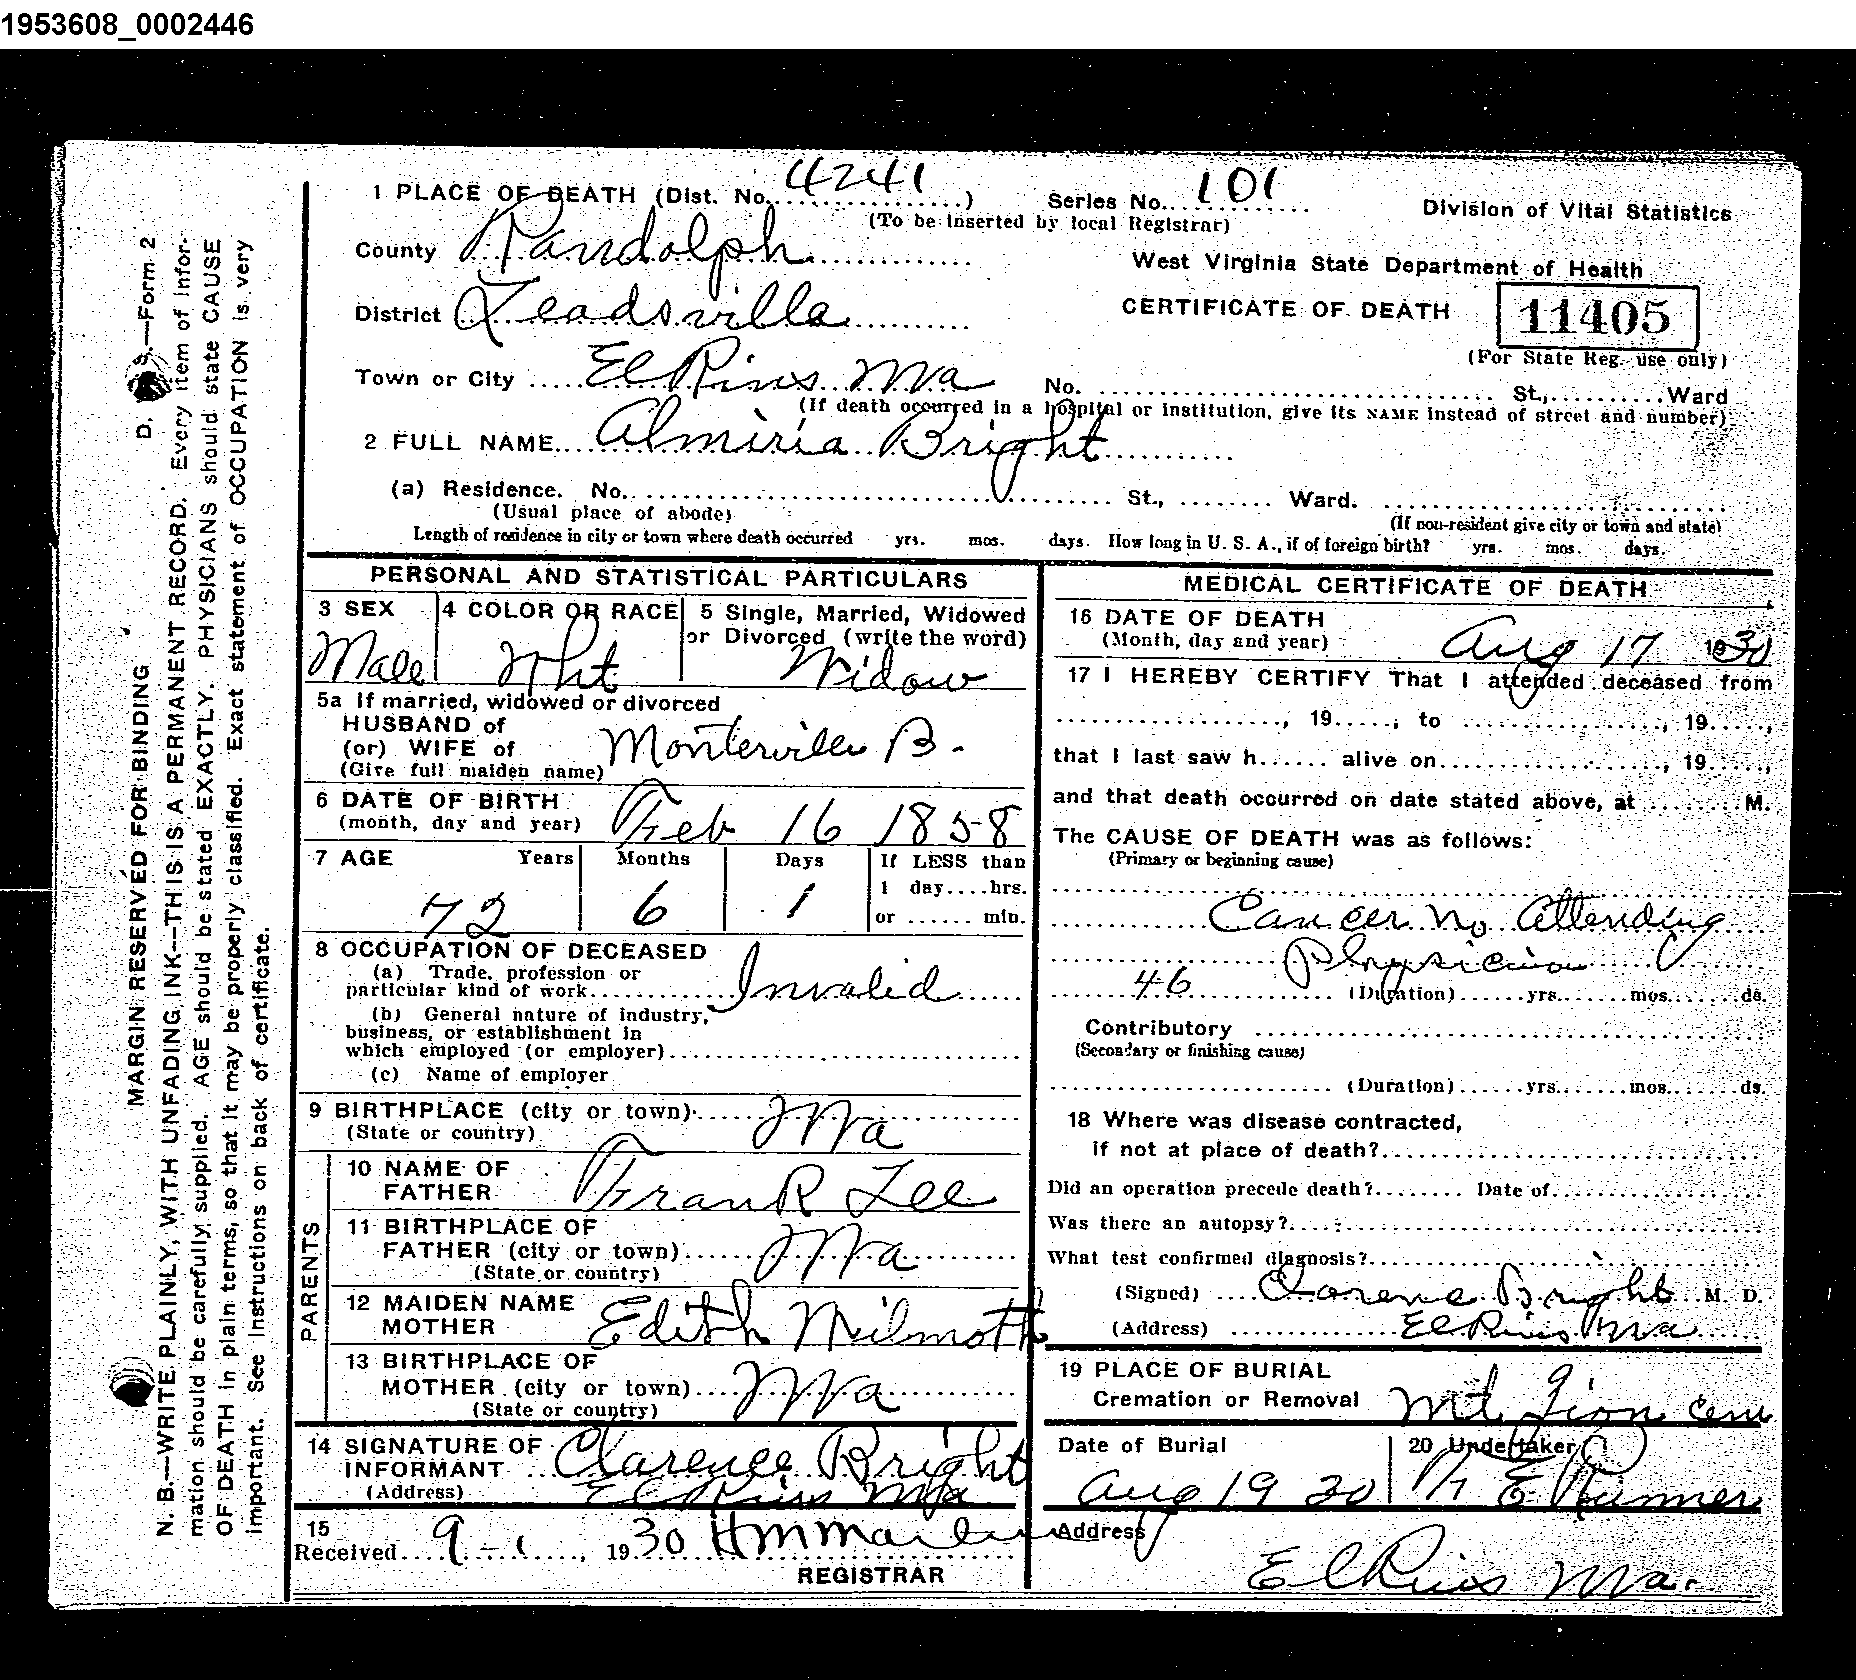 1953608_0002446
1 PLACE OF DEATH (Dist. No. 4241) Series No. 101
(To be inserted by local Registrar)
Division of Vital Statistics
County Randolph
West Virginia State Department of Health
District Leadsville
CERTIFICATE OF DEATH 11405
(For State Reg. use only)
Town or City Elkins Wva No. St., Ward
(If death occurred in a hospital or institution, give its NAME instead of street and number)
2 FULL NAME Almiria Bright
(a) Residence. No. St., Ward.
(Usual place of abode) (If non-resident give city or town and state)
Length of residence in city or town where death occurred yrs. mos. days. How long in U. S. A., if of foreign birth? yrs. mos. days.
PERSONAL AND STATISTICAL PARTICULARS
3 SEX 4 COLOR OR RACE 5 Single, Married, Widowed
or Divorced (write the word)
Male Wht Widow
5a If married, widowed or divorced
HUSBAND of
(or) WIFE of Monterville B.
(Give full maiden name)
6 DATE OF BIRTH
(month, day and year) Feb 16 1858
7 AGE Years Months Days If LESS than
1 day....hrs.
72 6 1 or ...... min.
8 OCCUPATION OF DECEASED
(a) Trade, profession or
particular kind of work Invalid
(b) General nature of industry,
business, or establishment in
which employed (or employer)
(c) Name of employer
9 BIRTHPLACE (city or town) Wva
(State or country)
PARENTS
10 NAME OF
FATHER Frank Lee
11 BIRTHPLACE OF
FATHER (city or town) Wva
(State or country)
12 MAIDEN NAME
MOTHER Edith Wilmoth
13 BIRTHPLACE OF
MOTHER (city or town) Wva
(State or country)
14 SIGNATURE OF
INFORMANT Clarence Bright
(Address) Elkins Wva
15
Received 9-1, 1930 HM
REGISTRAR
MEDICAL CERTIFICATE OF DEATH
16 DATE OF DEATH
(Month, day and year) Aug 17 1930
17 I HEREBY CERTIFY That I attended deceased from
, 19.....; to , 19.....,
that I last saw h...... alive on , 19.....,
and that death occurred on date stated above, at M.
The CAUSE OF DEATH was as follows:
(Primary or beginning cause)
Cancer No Attending
Physician
46 (Duration) yrs. mos. ds.
Contributory
(Secondary or finishing cause)
(Duration) yrs. mos. ds.
18 Where was disease contracted,
if not at place of death?
Did an operation precede death? Date of
Was there an autopsy?
What test confirmed diagnosis?
(Signed) Clarence Bright M. D.
(Address) Elkins Wva
19 PLACE OF BURIAL
Cremation or Removal Mt Zion Cem
Date of Burial 20 Undertaker
Aug 19 30 E Runner
Address
Elkins Wva.
D. S.—Form 2
MARGIN RESERVED FOR BINDING
N. B.—WRITE PLAINLY, WITH UNFADING INK—THIS IS A PERMANENT RECORD. Every item of infor-
mation should be carefully supplied. AGE should be stated EXACTLY. PHYSICIANS should state CAUSE
OF DEATH in plain terms, so that it may be properly classified. Exact statement of OCCUPATION is very
important. See instructions on back of certificate.